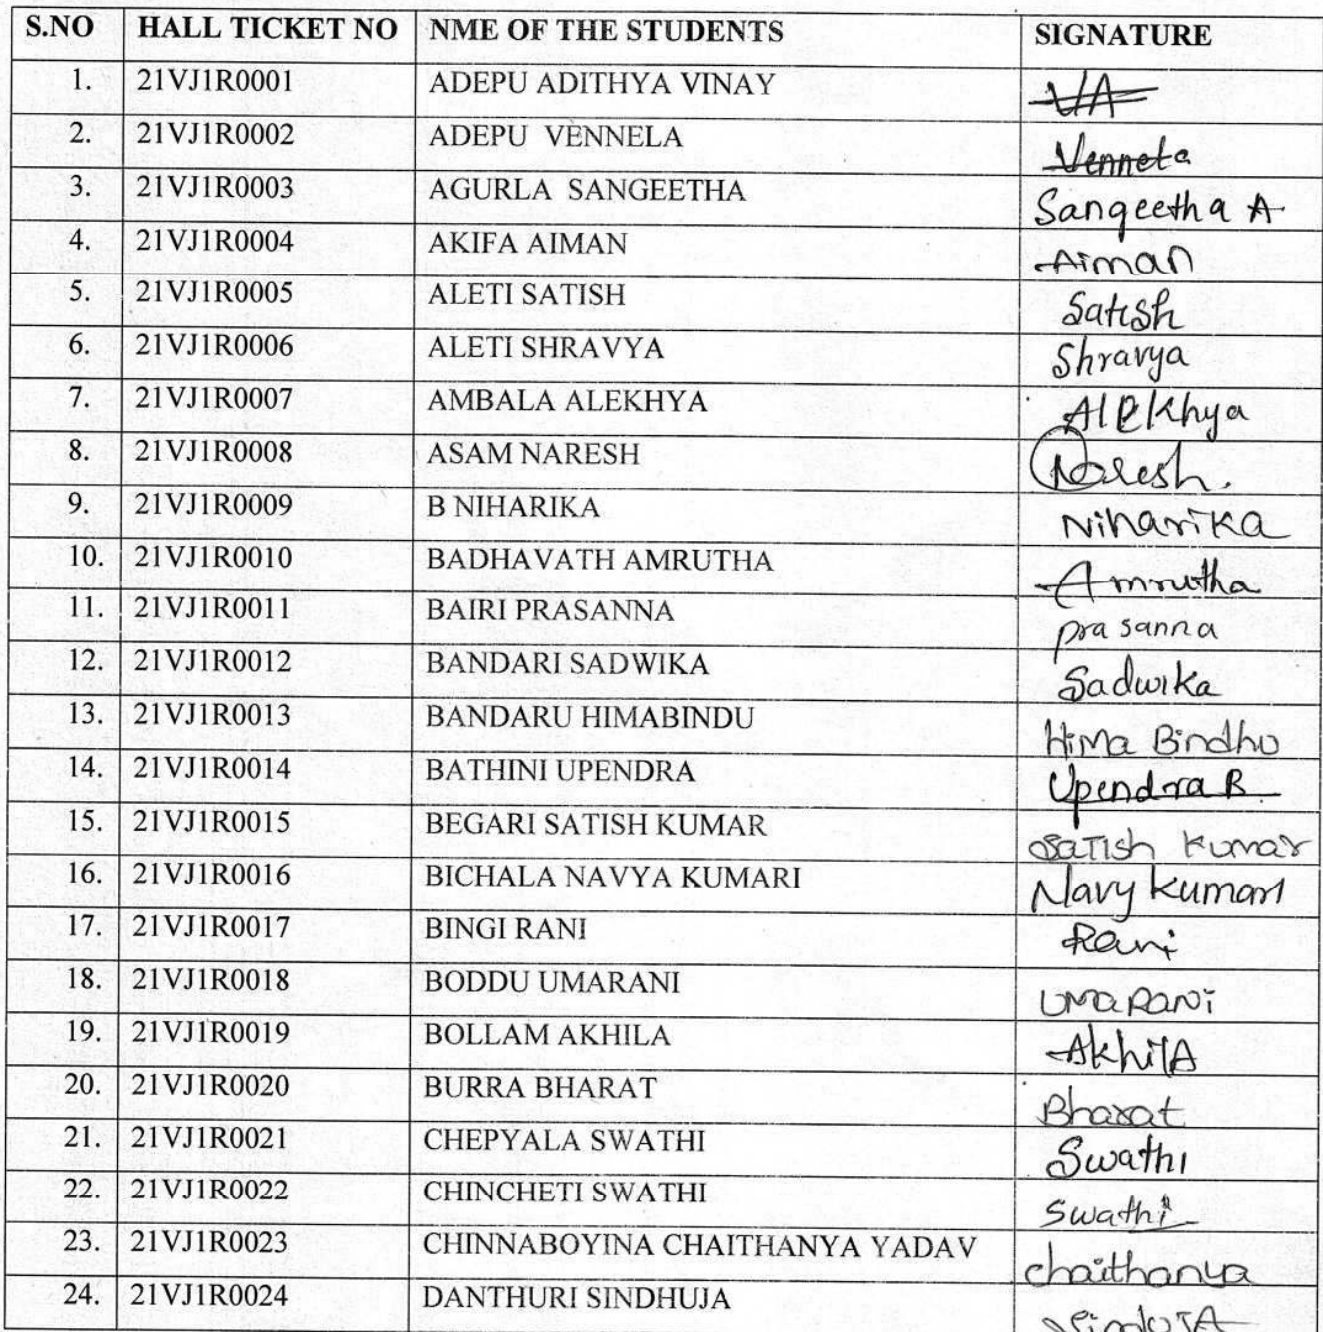 S.NO HALL TICKET NO NME OF THE STUDENTS SIGNATURE
1. 21VJ1R0001 ADEPU ADITHYA VINAY VA
2. 21VJ1R0002 ADEPU VENNELA Vennela
3. 21VJ1R0003 AGURLA SANGEETHA Sangeetha A
4. 21VJ1R0004 AKIFA AIMAN Aiman
5. 21VJ1R0005 ALETI SATISH Satish
6. 21VJ1R0006 ALETI SHRAVYA Shravya
7. 21VJ1R0007 AMBALA ALEKHYA AleKhya
8. 21VJ1R0008 ASAM NARESH Naresh.
9. 21VJ1R0009 B NIHARIKA NihariKa
10. 21VJ1R0010 BADHAVATH AMRUTHA Amrutha
11. 21VJ1R0011 BAIRI PRASANNA prasanna
12. 21VJ1R0012 BANDARI SADWIKA Sadwika
13. 21VJ1R0013 BANDARU HIMABINDU Hima Bindhu
14. 21VJ1R0014 BATHINI UPENDRA Upendra B
15. 21VJ1R0015 BEGARI SATISH KUMAR Satish Kumar
16. 21VJ1R0016 BICHALA NAVYA KUMARI Navy Kumari
17. 21VJ1R0017 BINGI RANI Rani
18. 21VJ1R0018 BODDU UMARANI UmaRani
19. 21VJ1R0019 BOLLAM AKHILA AkhilA
20. 21VJ1R0020 BURRA BHARAT Bharat
21. 21VJ1R0021 CHEPYALA SWATHI Swathi
22. 21VJ1R0022 CHINCHETI SWATHI Swathi
23. 21VJ1R0023 CHINNABOYINA CHAITHANYA YADAV chaithanya
24. 21VJ1R0024 DANTHURI SINDHUJA